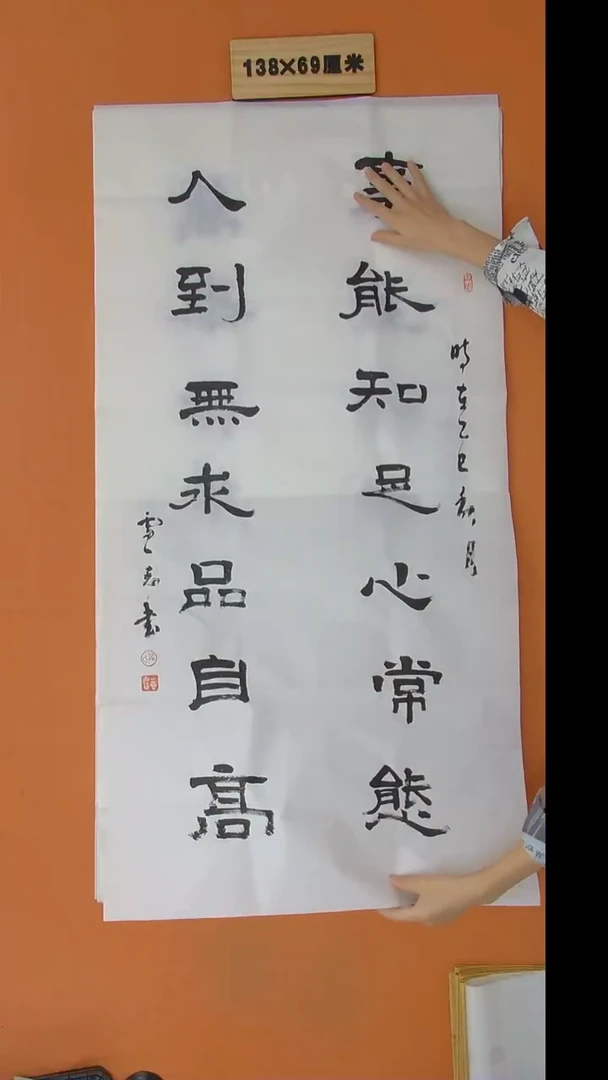 138×69厘米
時在乙巳秋月
事能知足心常態
人到無求品自高
書